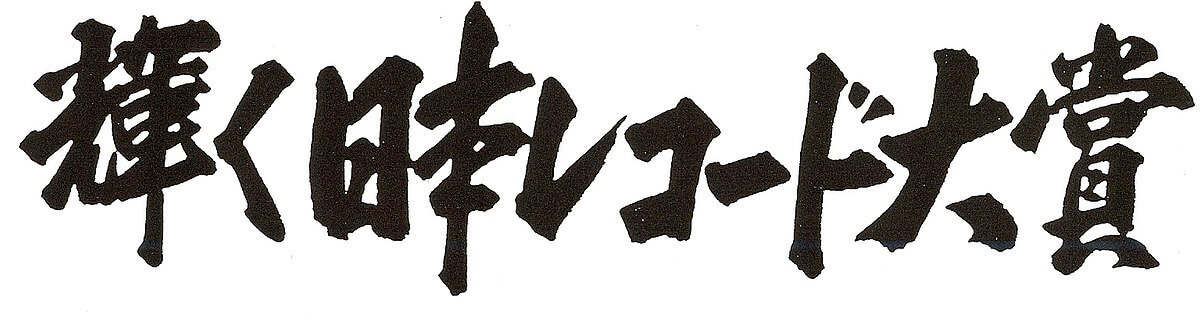 輝く日本レコード大賞